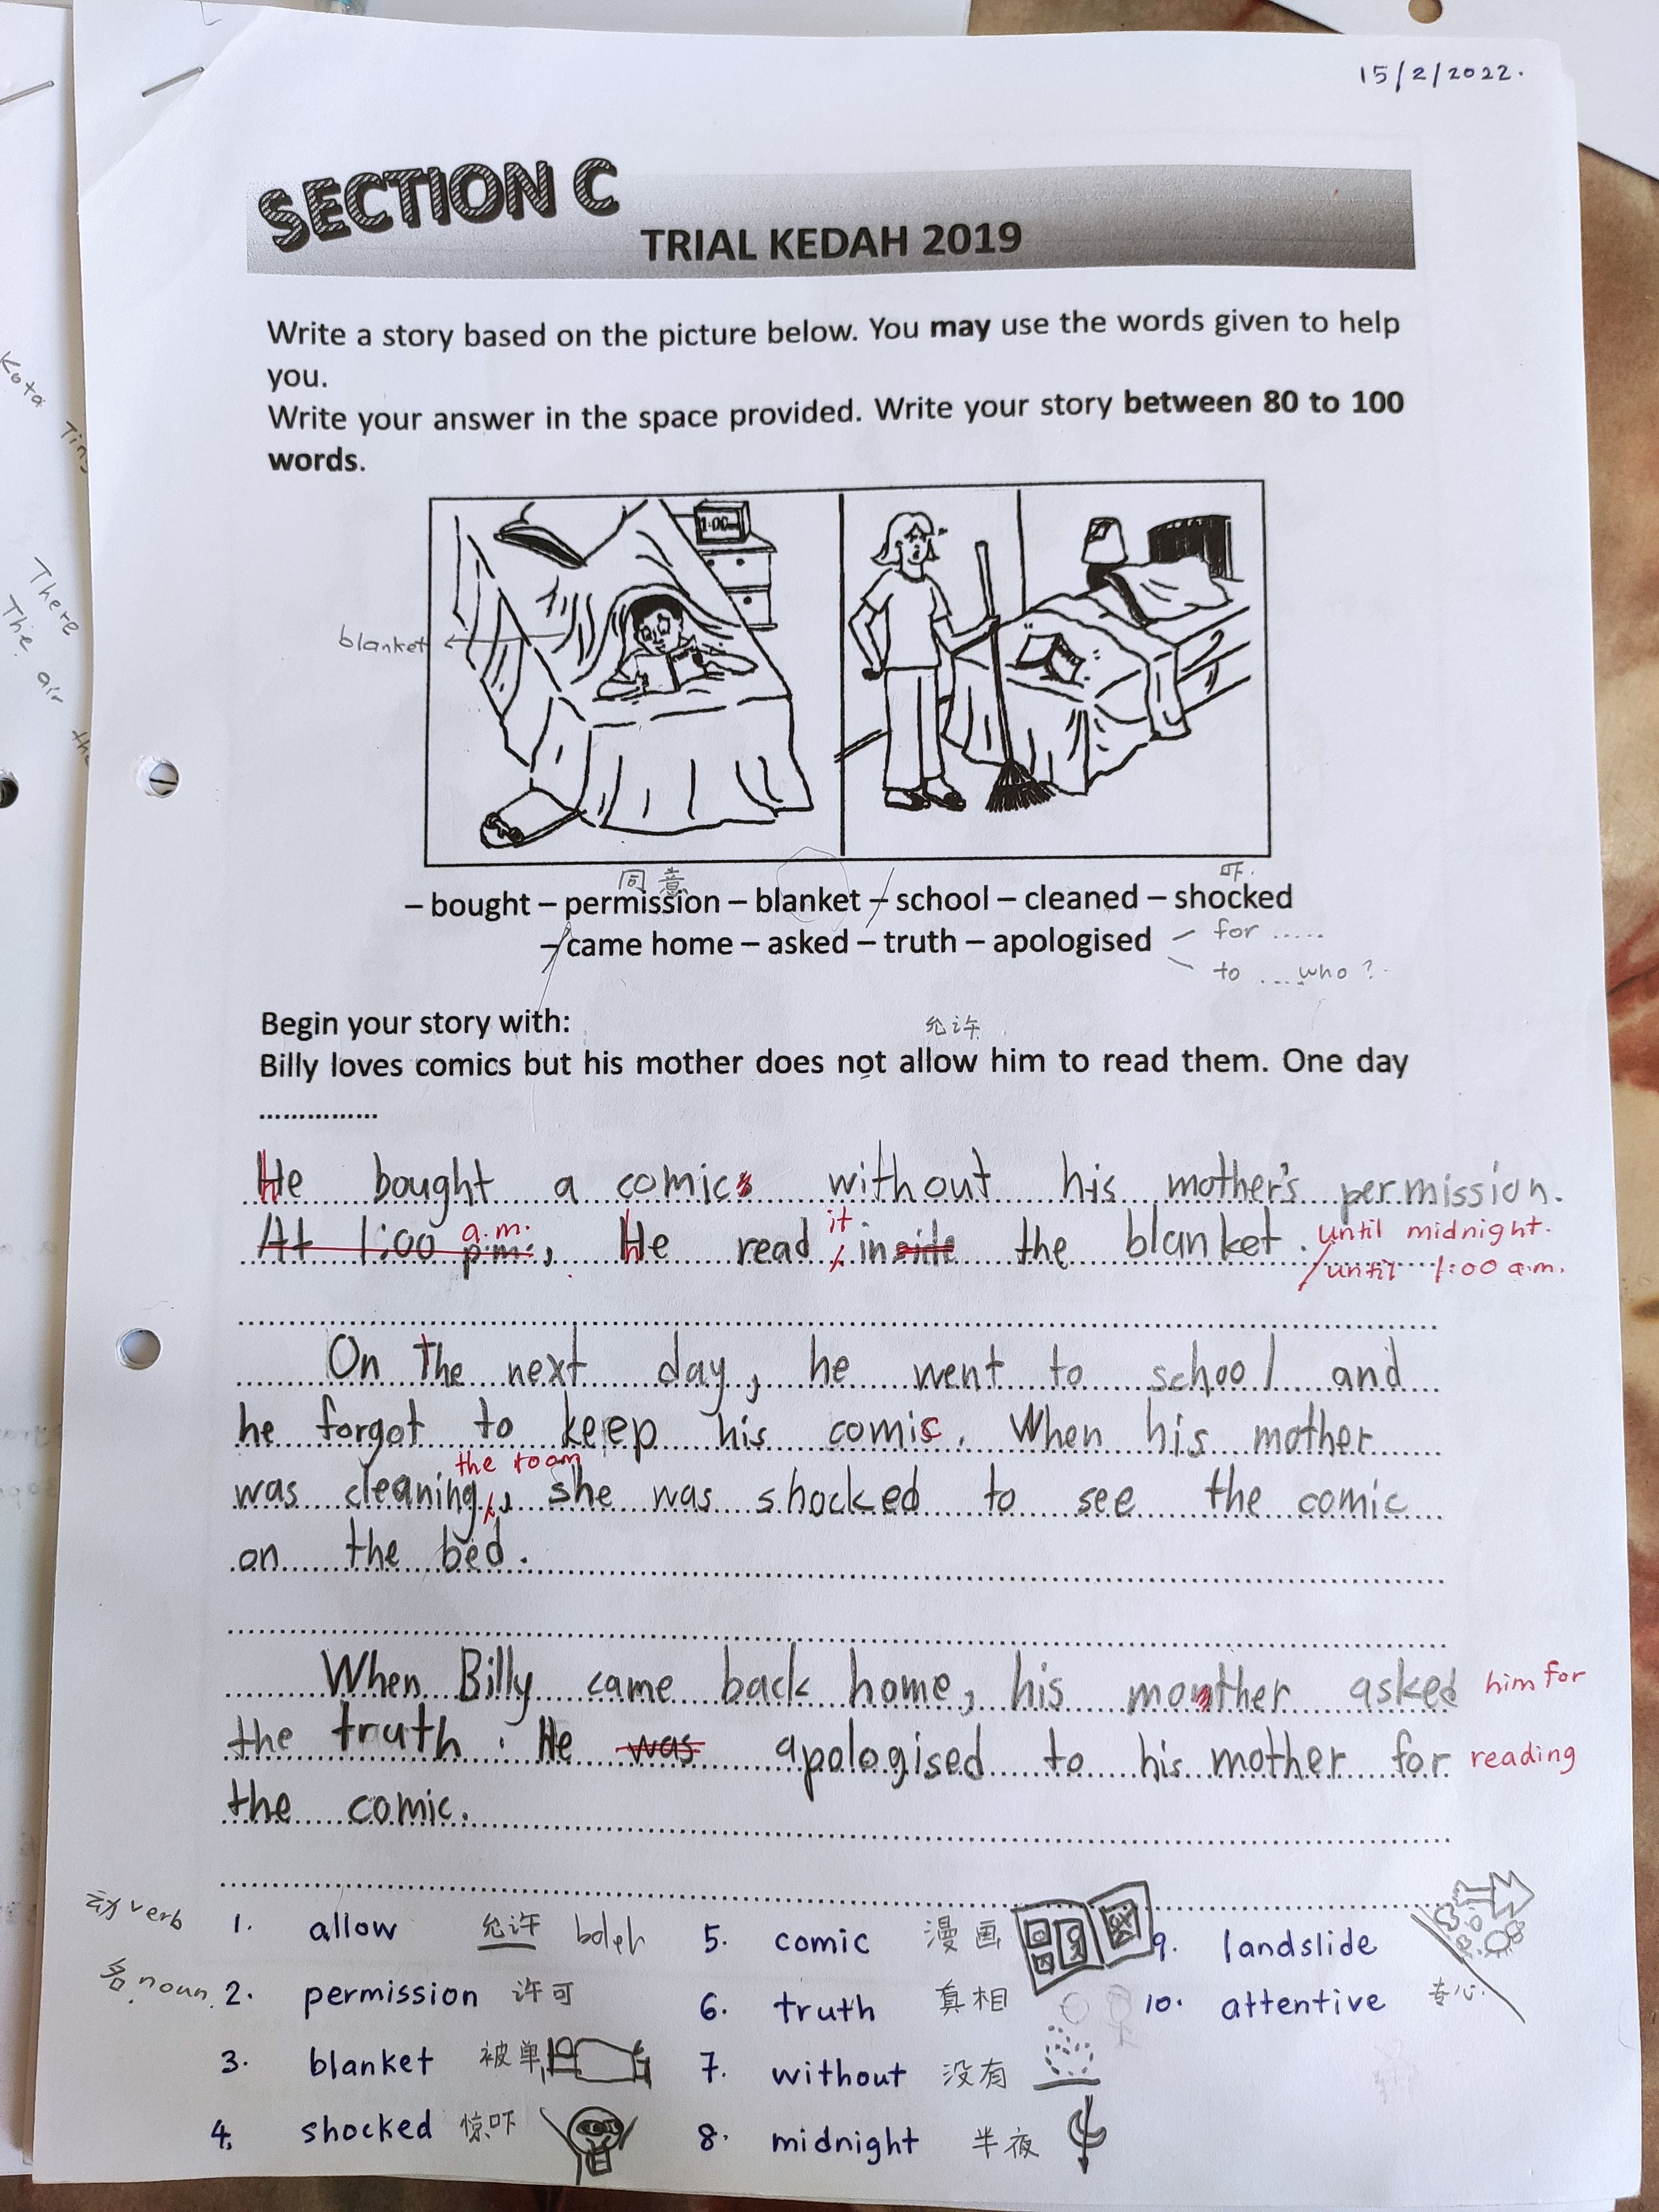 15/2/2022.
SECTION C
TRIAL KEDAH 2019
Write a story based on the picture below. You may use the words given to help
you.
Write your answer in the space provided. Write your story between 80 to 100
words.
1:00
blanket
同意
吓.
– bought – permission – blanket – school – cleaned – shocked
– came home – asked – truth – apologised
for .....
to ....who?
Begin your story with:
允许
Billy loves comics but his mother does not allow him to read them. One day
...............
He bought a comics without his mother's permission.
a.m. it
At 1:00 p.m., He read inside the blanket. until midnight.
/until 1:00 a.m.
On the next day, he went to school and
he forgot to keep his comic. When his mother
the room
was cleaning, she was shocked to see the comic
on the bed.
When Billy came back home, his mother asked him for
the truth. He was apologised to his mother for reading
the comic.
动 verb
1. allow 允许 boleh
5. comic 漫画
9. landslide
名 noun.
2. permission 许可
6. truth 真相
10. attentive 专心
3. blanket 被单
7. without 没有
4. shocked 惊吓
8. midnight 半夜
Kota
There
The air